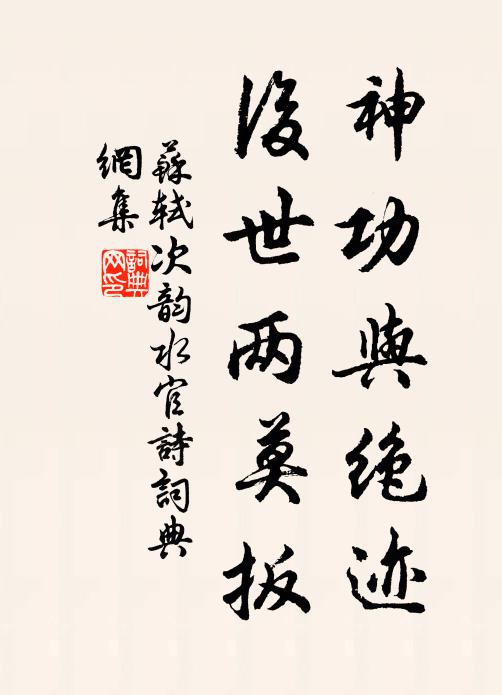 神功與绝迹
後世两莫扳
蘇軾次韵水官詩詞典
網集
詞典
网印